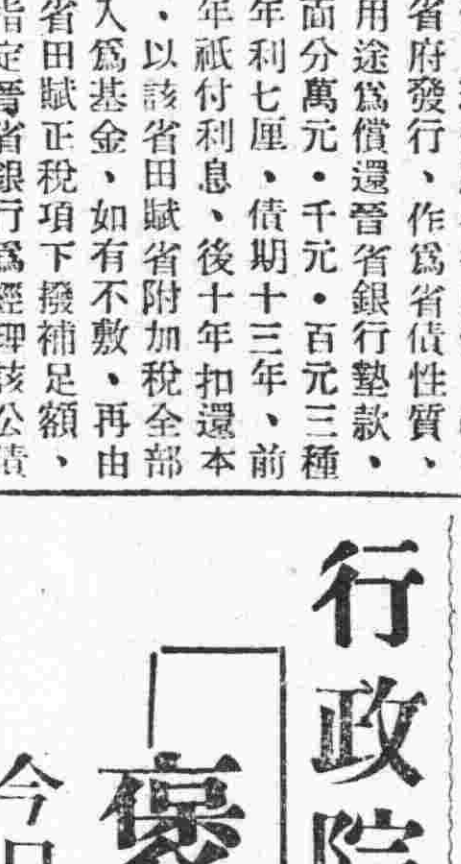 省府發行、作爲省債性質、
用途爲償還晉省銀行墊款、
面分萬元・千元・百元三種
年利七厘、債期十三年、前
年祗付利息、後十年扣還本
・以該省田賦省附加稅全部
入爲基金、如有不敷、再由
省田賦正稅項下撥補足額、
指定晉省銀行爲經理該公債
行政院
褒
今日